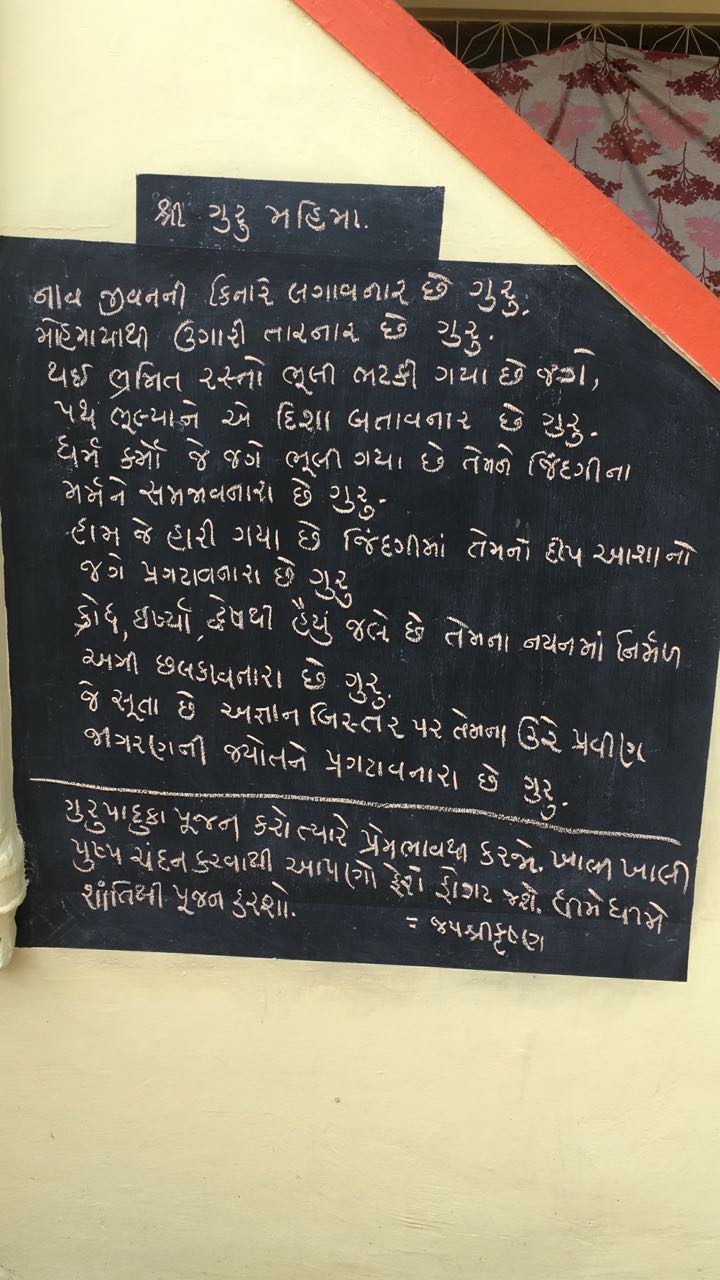 શ્રી ગુરુ મહિમા.
નાવ જીવનની કિનારે લગાવનાર છે ગુરુ.
મોહમાયાથી ઉગારી તારનાર છે ગુરુ.
થઈ ભ્રમિત રસ્તો ભૂલી ભટકી ગયા છે જગે,
પથ ભૂલ્યાને એ દિશા બતાવનાર છે ગુરુ.
ધર્મ કર્મો જે જગે ભૂલી ગયા છે તેમને જિંદગીના
મર્મને સમજાવનારા છે ગુરુ.
હામ જે હારી ગયા છે જિંદગીમાં તેમનો દીપ આશાનો
જગે પ્રગટાવનારા છે ગુરુ
ક્રોધ, ઈર્ષ્યા, દ્વેષથી હૈયું જલે છે તેમના નયનમાં નિર્મળ
અમી છલકાવનારા છે ગુરુ.
જે સૂતા છે અજ્ઞાન બિસ્તર પર તેમના ઉરે પ્રવીણ
જાગરણની જ્યોતને પ્રગટાવનારા છે ગુરુ.
ગુરુપાદુકા પૂજન કરો ત્યારે પ્રેમભાવથી કરજો. ખાલી ખાલી
પુષ્પ ચંદન કરવાથી આપણો ફેરો ફોગટ જશે. ધીમે ધીમે
શાંતિથી પૂજન કરશો.
= જયશ્રીકૃષ્ણ